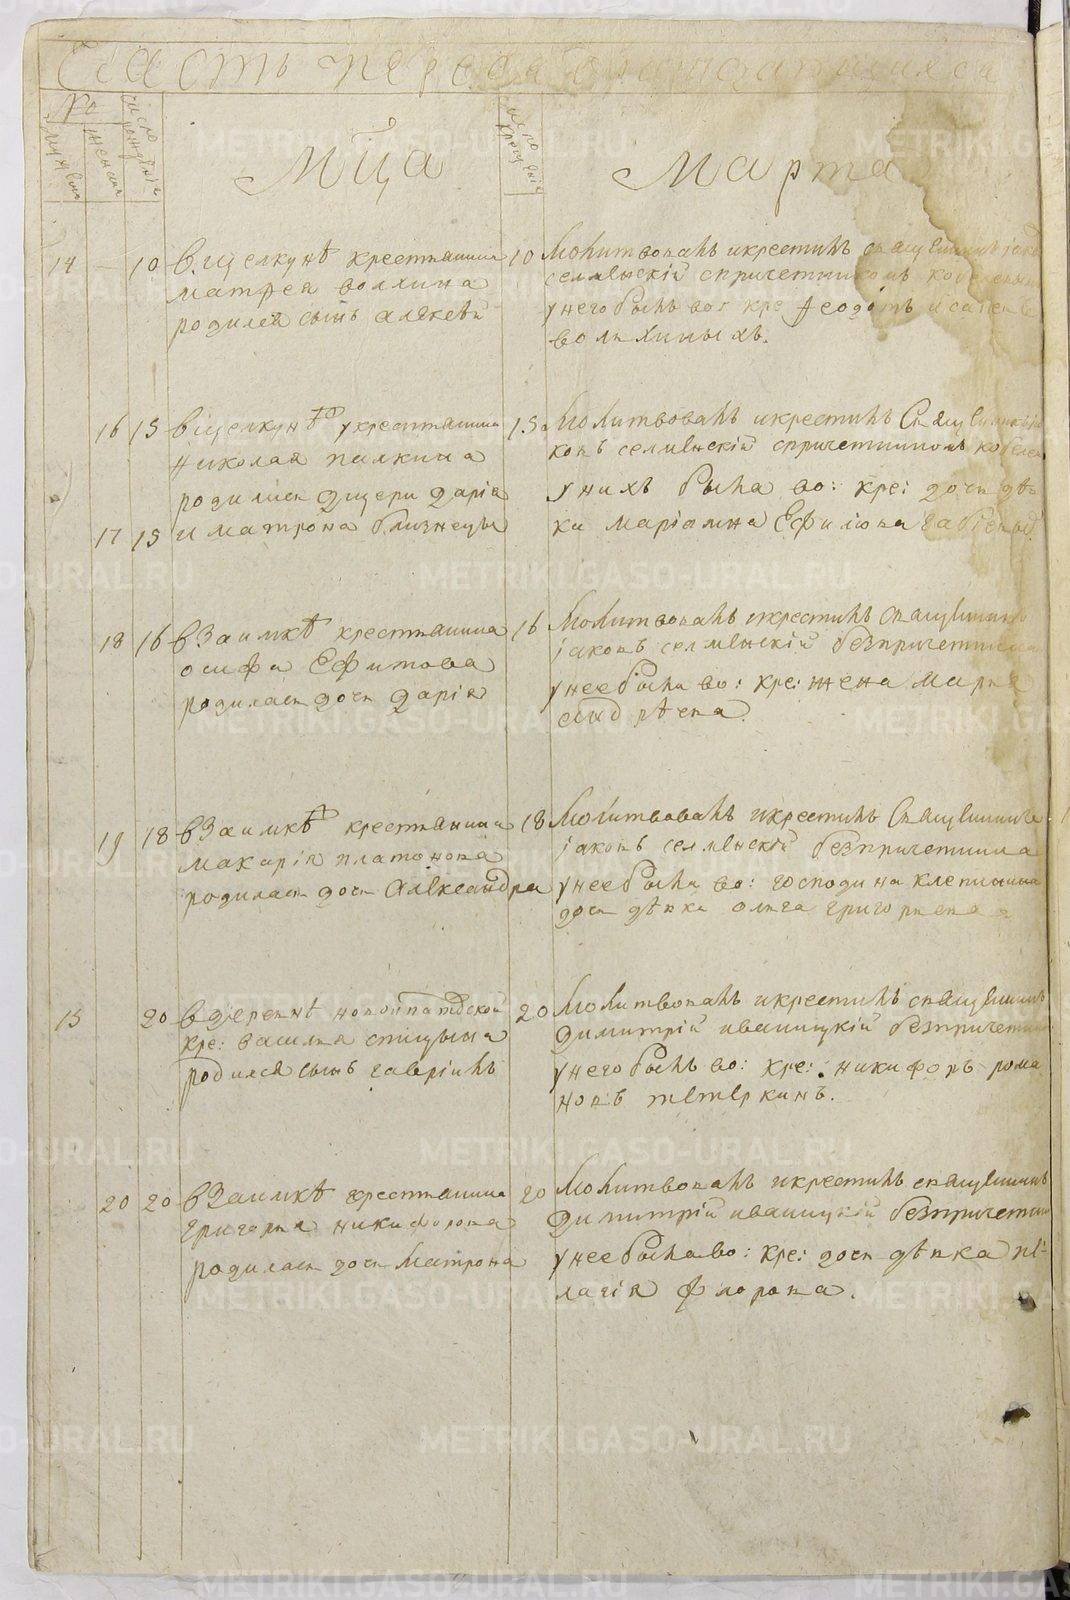 Часть первая о раждающихся
№
мужеска
женска
число рождения
Мца
число крещения
Марта
14 10 вщелкунѣ крестьянина
матфея волхина
родился сынъ алеѯей
10 Молитвовалъ икрестилъ священникъ
селменскїй спричетникомъ
унего былъ во: кре Феодотъ
волхиныхъ.
16 15 вщелкунѣ укрестьянина
николая палкина
родились дщери дарія
17 15 и матрона близнецы
15 Молитвовалъ икрестилъ Священникъ
ковъ селменскїй спричетникомъ
унихъ была во: кре: дочь дѣв
ка маріамна Ефимова
18 16 вЗаимкѣ крестьянина
осифа Ефимова
родилась дочь Дарія
16 Молитвовалъ икрестилъ священникъ
іаковъ селменскїй безпричетника
унее была во: кре: жена Марья
андрѣева.
19 18 вЗаимкѣ крестьянина
макарія платонова
родилась дочь Александра
18 Молитвовалъ икрестилъ Священникъ
іаковъ селменскїй безпричетника
унее была во: господина клепинина
дочь дѣвка олга григорьева
15 20 вдеревнѣ новоипатской
кре: василья спицына
родился сынъ гавріилъ
20 Молитвовалъ икрестилъ священникъ
димитрїй иваницкїй безпричетни
унего былъ во: кре: никифоръ рома
новъ тетеркинъ.
20 20 вЗаимкѣ крестьянина
григорья никифорова
родилась дочь Матрона
20 Молитвовалъ икрестилъ священникъ
димитрїй иваницкїй безпричетни
унее была во: кре: дочь дѣвка пе-
лагія флорова.
METRIKI.GASO-URAL.RU